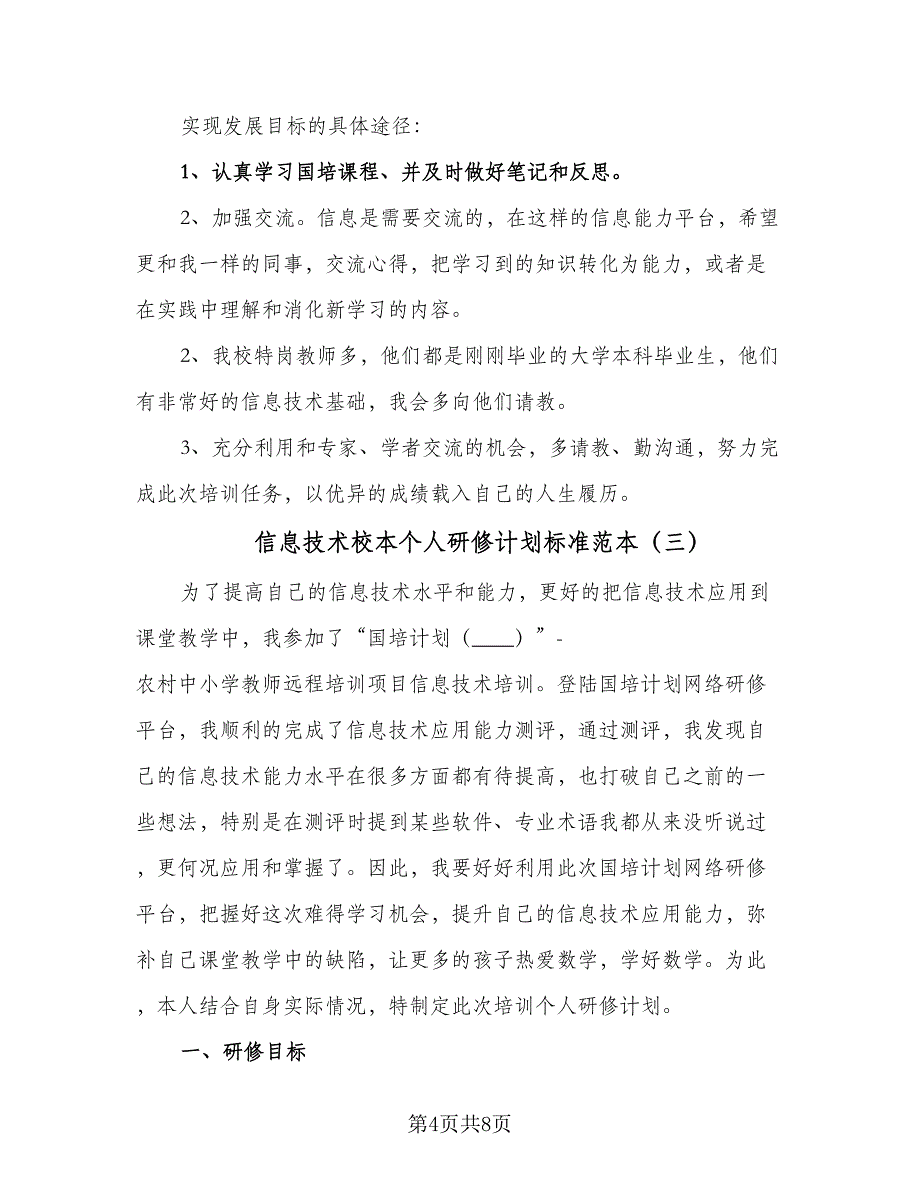 实现发展目标的具体途径：
1、认真学习国培课程、并及时做好笔记和反思。
2、加强交流。信息是需要交流的，在这样的信息能力平台，希望
更和我一样的同事，交流心得，把学习到的知识转化为能力，或者是
在实践中理解和消化新学习的内容。
2、我校特岗教师多，他们都是刚刚毕业的大学本科毕业生，他们
有非常好的信息技术基础，我会多向他们请教。
3、充分利用和专家、学者交流的机会，多请教、勤沟通，努力完
成此次培训任务，以优异的成绩载入自己的人生履历。
信息技术校本个人研修计划标准范本（三）
为了提高自己的信息技术水平和能力，更好的把信息技术应用到
课堂教学中，我参加了“国培计划（____）”-
农村中小学教师远程培训项目信息技术培训。登陆国培计划网络研修
平台，我顺利的完成了信息技术应用能力测评，通过测评，我发现自
己的信息技术能力水平在很多方面都有待提高，也打破自己之前的一
些想法，特别是在测评时提到某些软件、专业术语我都从来没听说过
，更何况应用和掌握了。因此，我要好好利用此次国培计划网络研修
平台，把握好这次难得学习机会，提升自己的信息技术应用能力，弥
补自己课堂教学中的缺陷，让更多的孩子热爱数学，学好数学。为此
，本人结合自身实际情况，特制定此次培训个人研修计划。
一、研修目标
第4页共8页